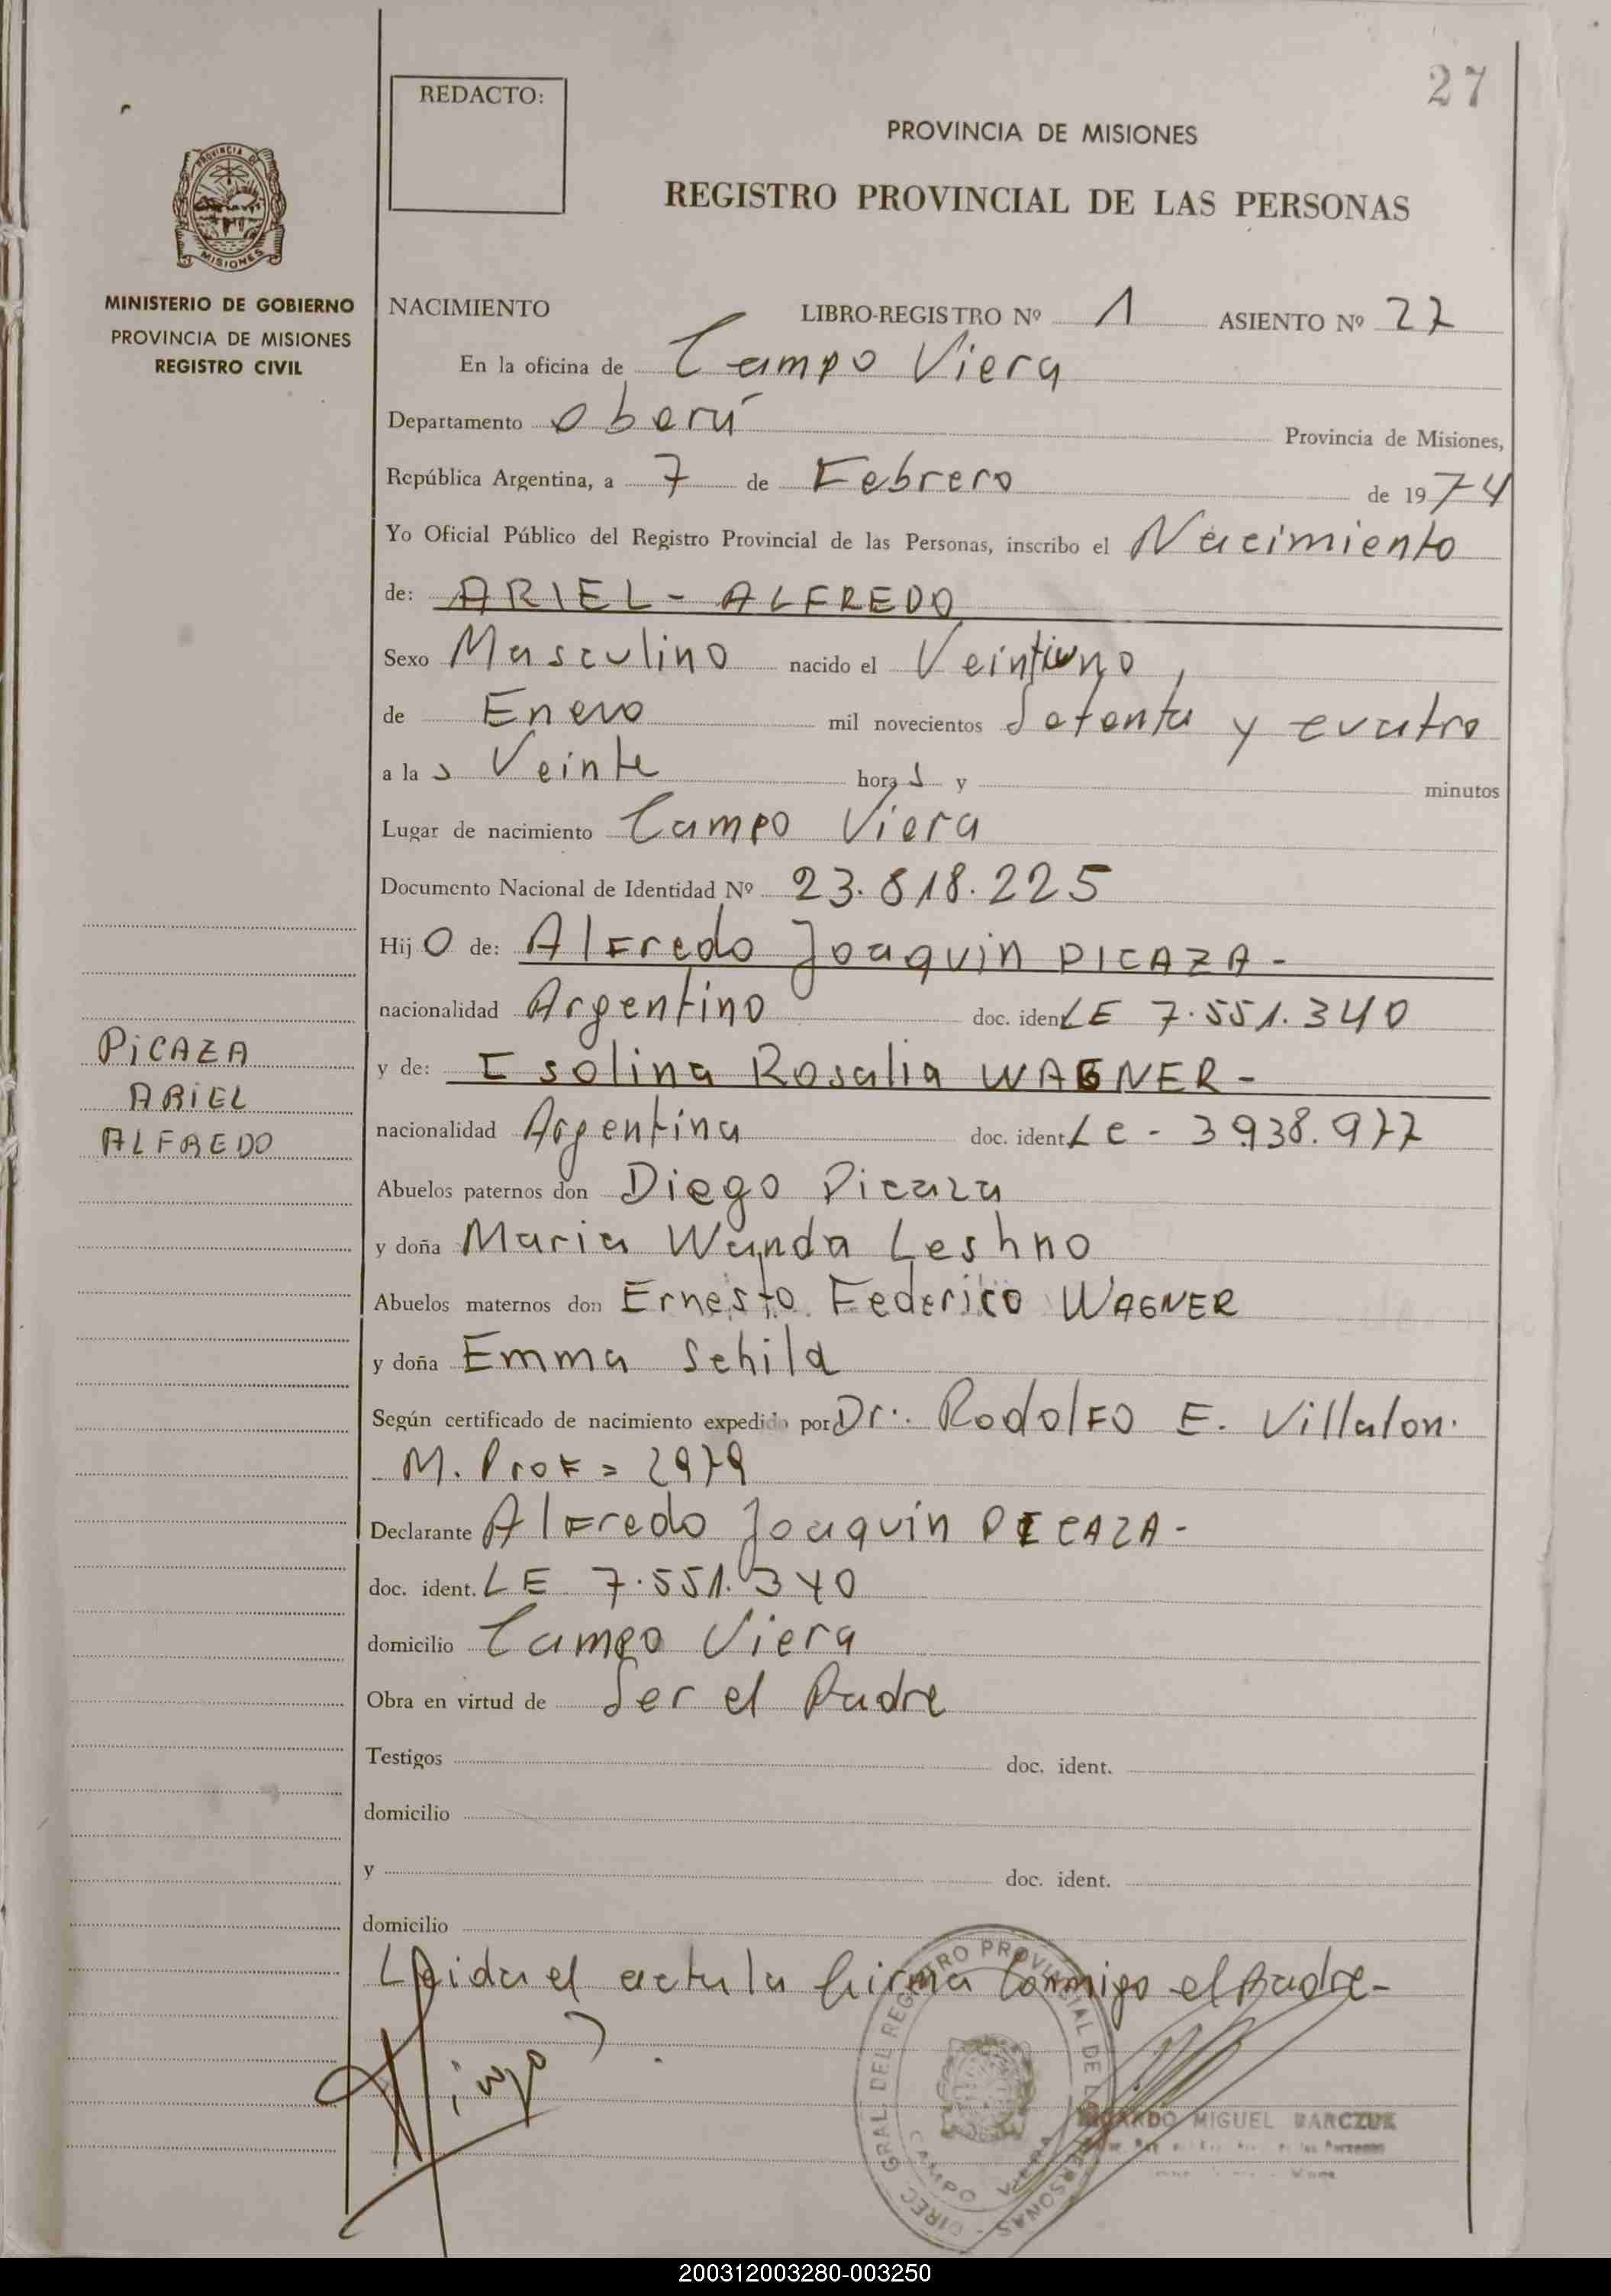 27
REDACTO:
PROVINCIA DE MISIONES
REGISTRO PROVINCIAL DE LAS PERSONAS
PROVINCIA DE
MISIONES
MINISTERIO DE GOBIERNO
PROVINCIA DE MISIONES
REGISTRO CIVIL
NACIMIENTO LIBRO-REGISTRO Nº 1 ASIENTO Nº 27
En la oficina de Campo Viera
Departamento Oberá Provincia de Misiones,
República Argentina, a 7 de Febrero de 1974
Yo Oficial Público del Registro Provincial de las Personas, inscribo el Nacimiento
de: ARIEL - ALFREDO
Sexo Masculino nacido el Veintiuno,
de Enero mil novecientos Setenta y cuatro
a las Veinte horas y minutos
Lugar de nacimiento Campo Viera
Documento Nacional de Identidad Nº 23.818.225
Hijo de: Alfredo Joaquin PICAZA -
nacionalidad Argentino doc. iden LE 7.551.340
y de: Isolina Rosalia WAGNER -
nacionalidad Argentina doc. ident. Le - 3938.977
Abuelos paternos don Diego Picaza
y doña Maria Wanda Leshno
Abuelos maternos don Ernesto Federico WAGNER
y doña Emma Schild
Según certificado de nacimiento expedido por Dr.. Rodolfo E. Villalon.
M. Prof = 2979
Declarante Alfredo Joaquin PICAZA -
doc. ident. LE 7.551.340
domicilio Campo Viera
Obra en virtud de Ser el Padre
Testigos doc. ident.
domicilio
y doc. ident.
domicilio
Leida el acta la firma conmigo el Padre -
PICAZA
ARIEL
ALFREDO
DIREC. GRAL. DEL REGISTRO PROVINCIAL DE LAS PERSONAS -
CAMPO VIERA
RICARDO MIGUEL BARCZUK
200312003280-003250